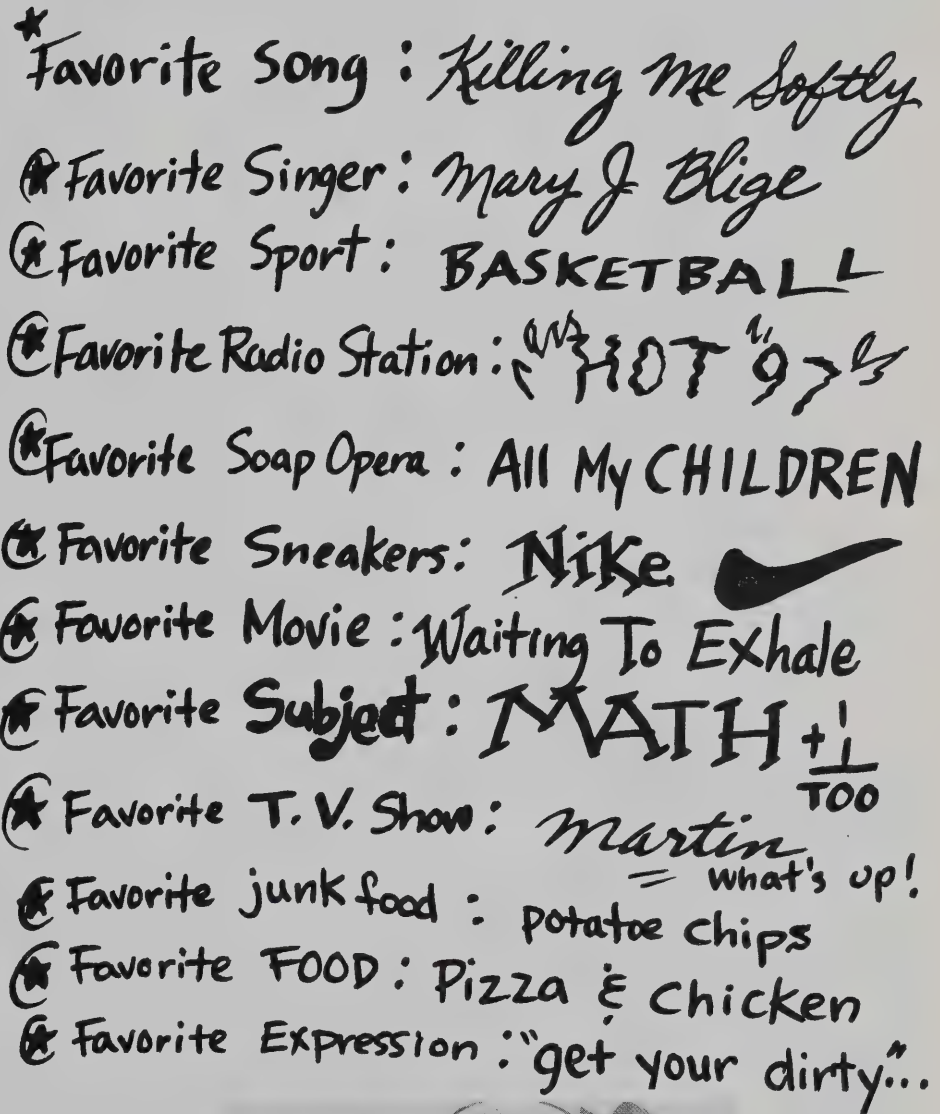 Favorite Song : Killing Me Softly
Favorite Singer : Mary J Blige
Favorite Sport : BASKETBALL
Favorite Radio Station : "HOT 97"
Favorite Soap Opera : All My CHILDREN
Favorite Sneakers : Nike
Favorite Movie : Waiting To Exhale
Favorite Subject : MATH + 1
1
TOO
Favorite T.V. Show : Martin
what's up!
Favorite junk food : potatoe chips
Favorite FOOD : Pizza & Chicken
Favorite Expression : "get your dirty"...